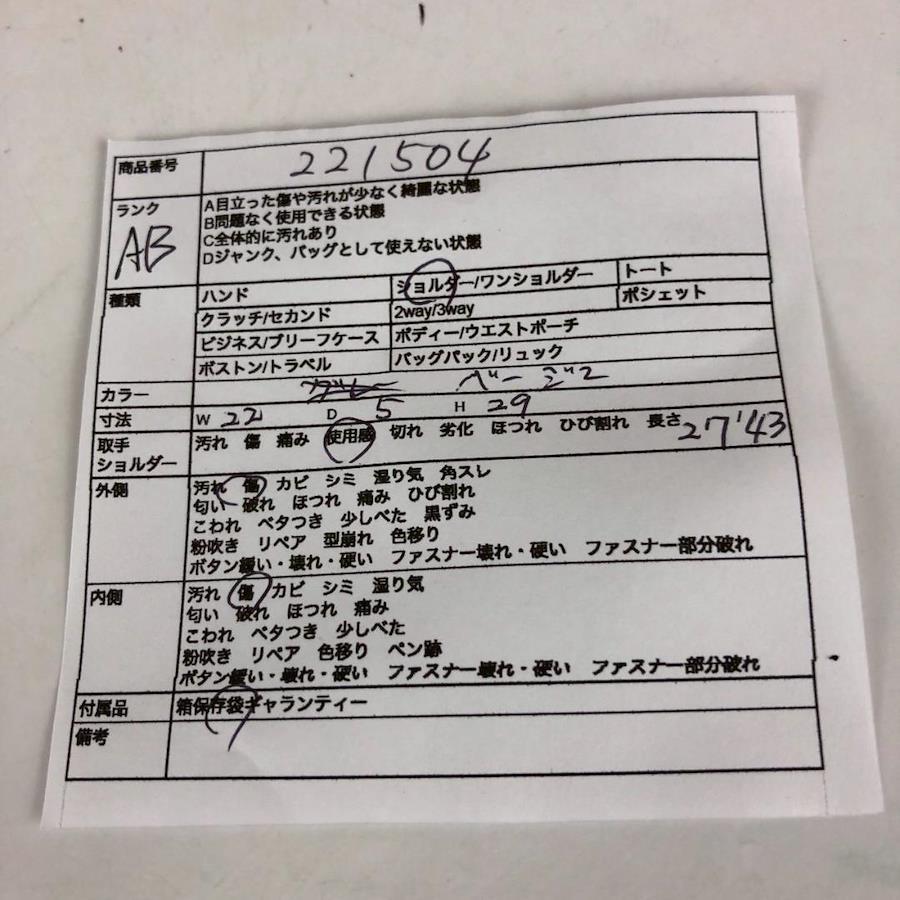 商品番号 221504
ランク AB
A目立った傷や汚れが少なく綺麗な状態
B問題なく使用できる状態
C全体的に汚れあり
Dジャンク、バッグとして使えない状態
種類 ハンド ショルダー/ワンショルダー トート
クラッチ/セカンド 2way/3way ポシェット
ビジネス/ブリーフケース ボディー/ウエストポーチ
ボストン/トラベル バッグパック/リュック
カラー ベージュ
寸法 W 22 D 5 H 29
取手
ショルダー
汚れ 傷 痛み 使用感 切れ 劣化 ほつれ ひび割れ 長さ 27'43
外側 汚れ 傷 カビ シミ 湿り気 角スレ
匂い 破れ ほつれ 痛み ひび割れ
こわれ ベタつき 少しべた 黒ずみ
粉吹き リペア 型崩れ 色移り
ボタン緩い・壊れ・硬い ファスナー壊れ・硬い ファスナー部分破れ
内側 汚れ 傷 カビ シミ 湿り気
匂い 破れ ほつれ 痛み
こわれ ベタつき 少しべた
粉吹き リペア 色移り ペン跡
ボタン緩い・壊れ・硬い ファスナー壊れ・硬い ファスナー部分破れ
付属品 箱保存袋ギャランティー
備考